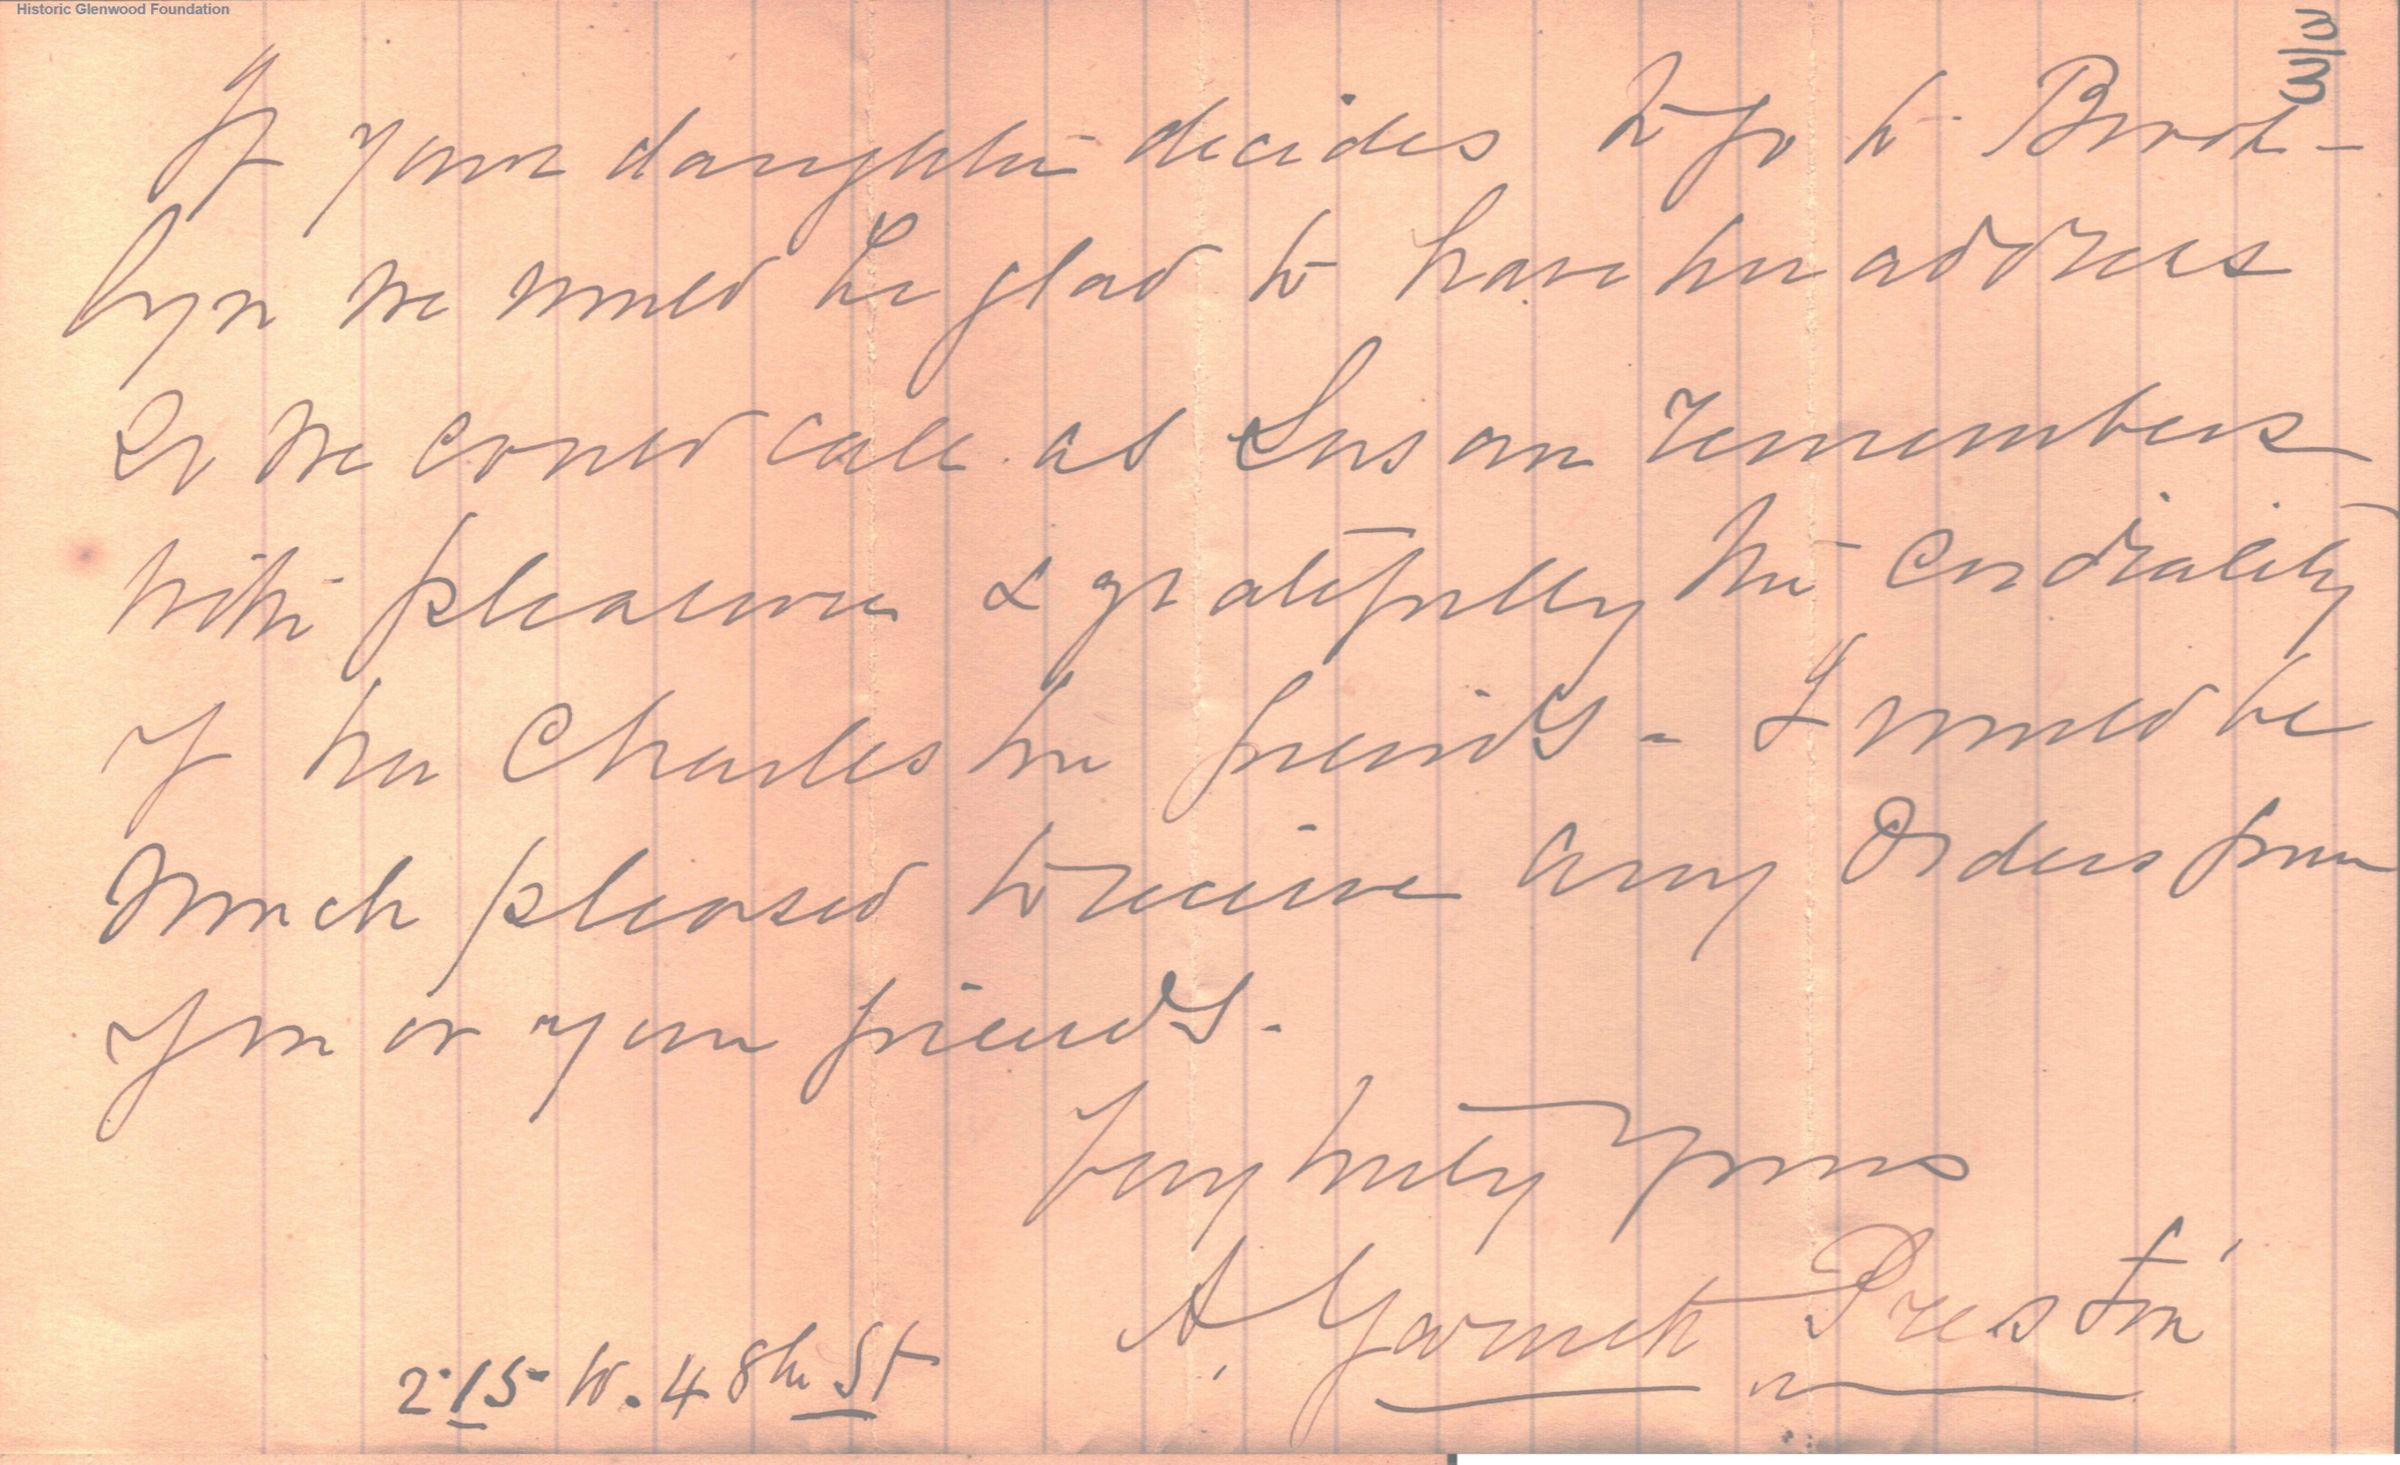 Historic Glenwood Foundation
3/3
If your daughter decides to go to Brook-
lyn we would be glad to have her address
so we could call as Susan remembers
with pleasure & gratefully the cordiality
of her Charleston friends - I would be
much pleased to receive any orders from
you or your friends.
Very truly yours
A. Garnett Preston
215 W. 48th St